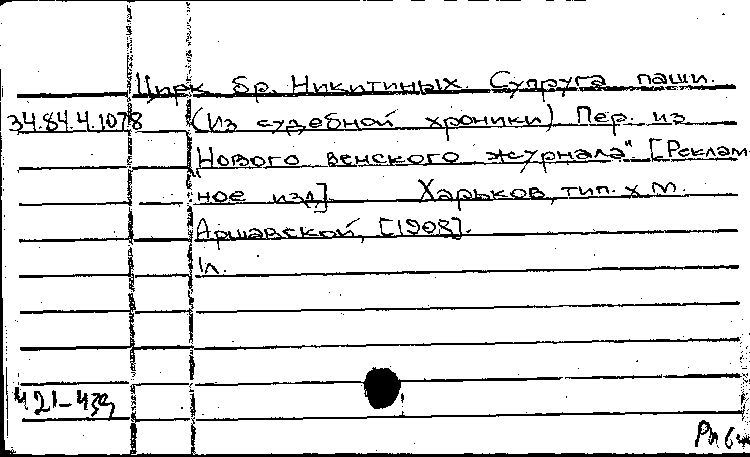 Цирк бр. Никитиных Супруга паши.
34.84.4.1078 (Из судебной хроники) Пер. из
"Нового венского журнала" [Реклам
ное изд]. Харьков, тип. Х.М.
Аршавской, [1908].
1л.
421-43д